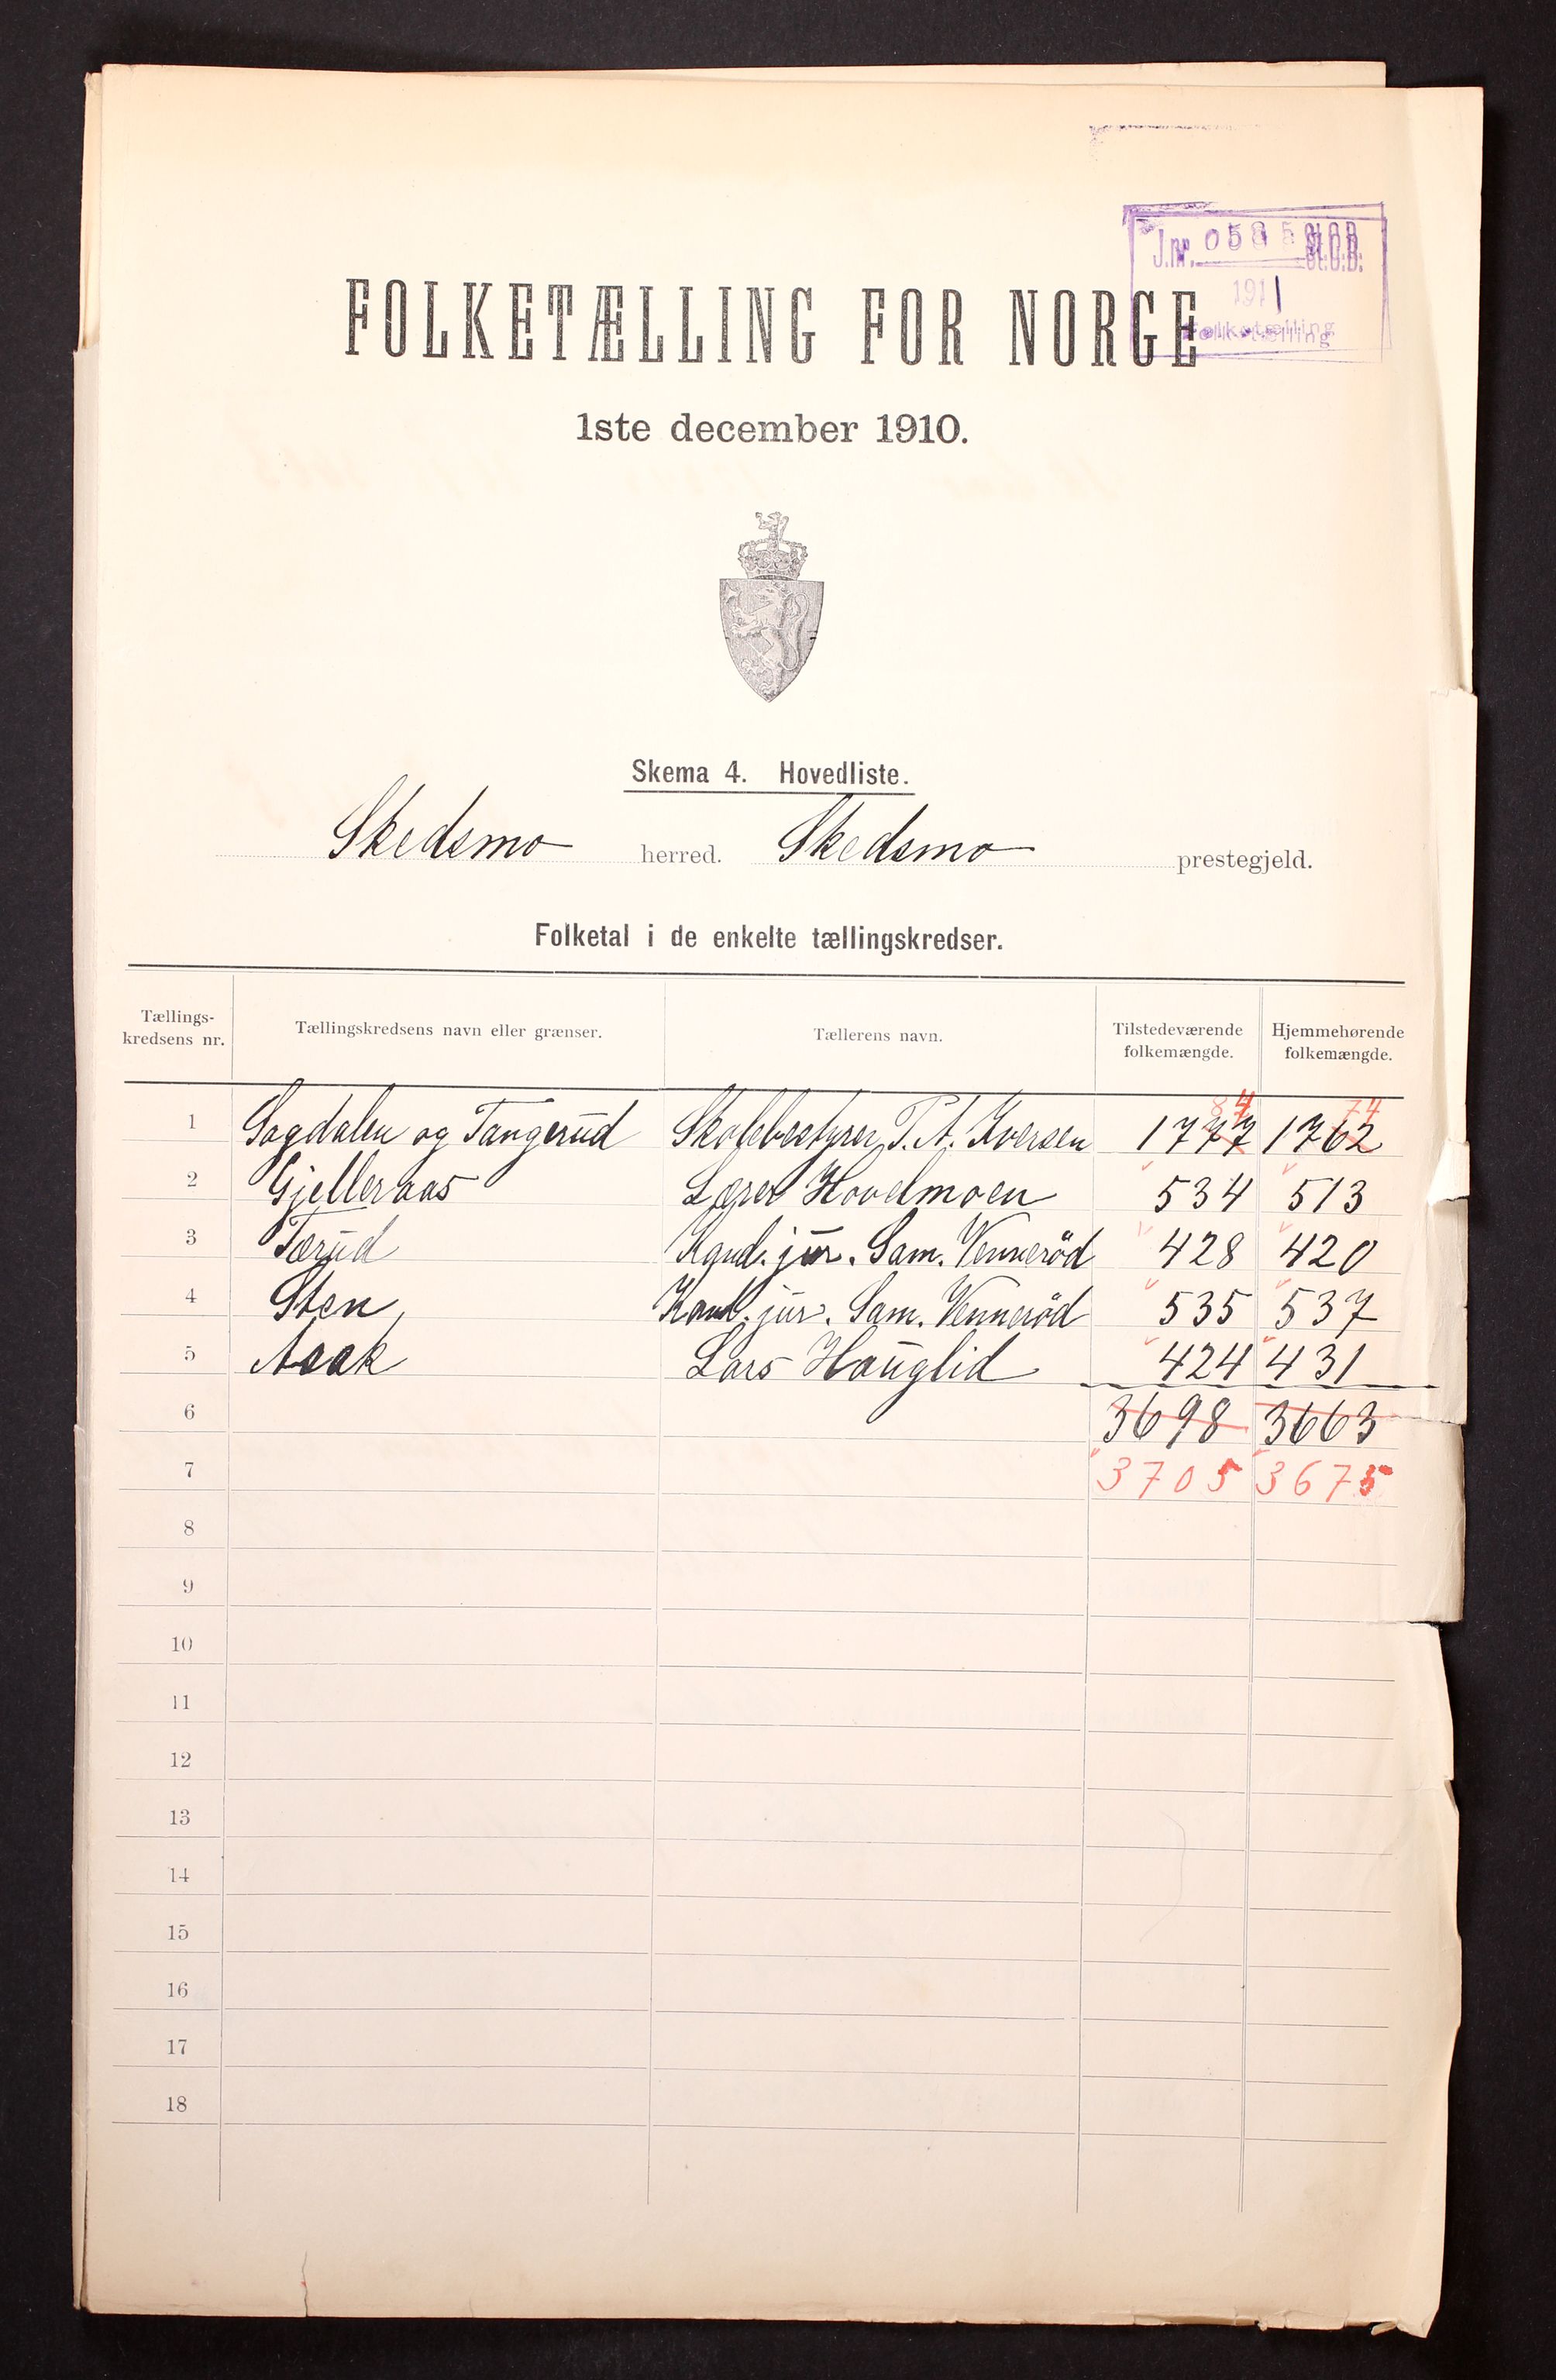 J.nr. 058 St.C.B.
191
Folketælling
FOLKETÆLLING FOR NORGE
1ste december 1910.
Skema 4. Hovedliste.
Skedsmo herred. Skedsmo prestegjeld.
Folketal i de enkelte tællingskredser.
Tællings-kredsens nr. Tællingskredsens navn eller grænser. Tællerens navn. Tilstedeværende folkemængde. Hjemmehørende folkemængde.
84 74
1 Sagdalen og Tangerud Skolebestyrer T. A. Iversen 1777 1762
2 Gjelleraas Lærer Hovelmoen 534 513
3 Tærud Kand. jur. Sam. Vennerød 428 420
4 Sten, Kand. jur. Sam. Vennerød 535 537
5 Asak Lars Hauglid 424 431
6 3698 3663
7 3705 3675
8
9
10
11
12
13
14
15
16
17
18